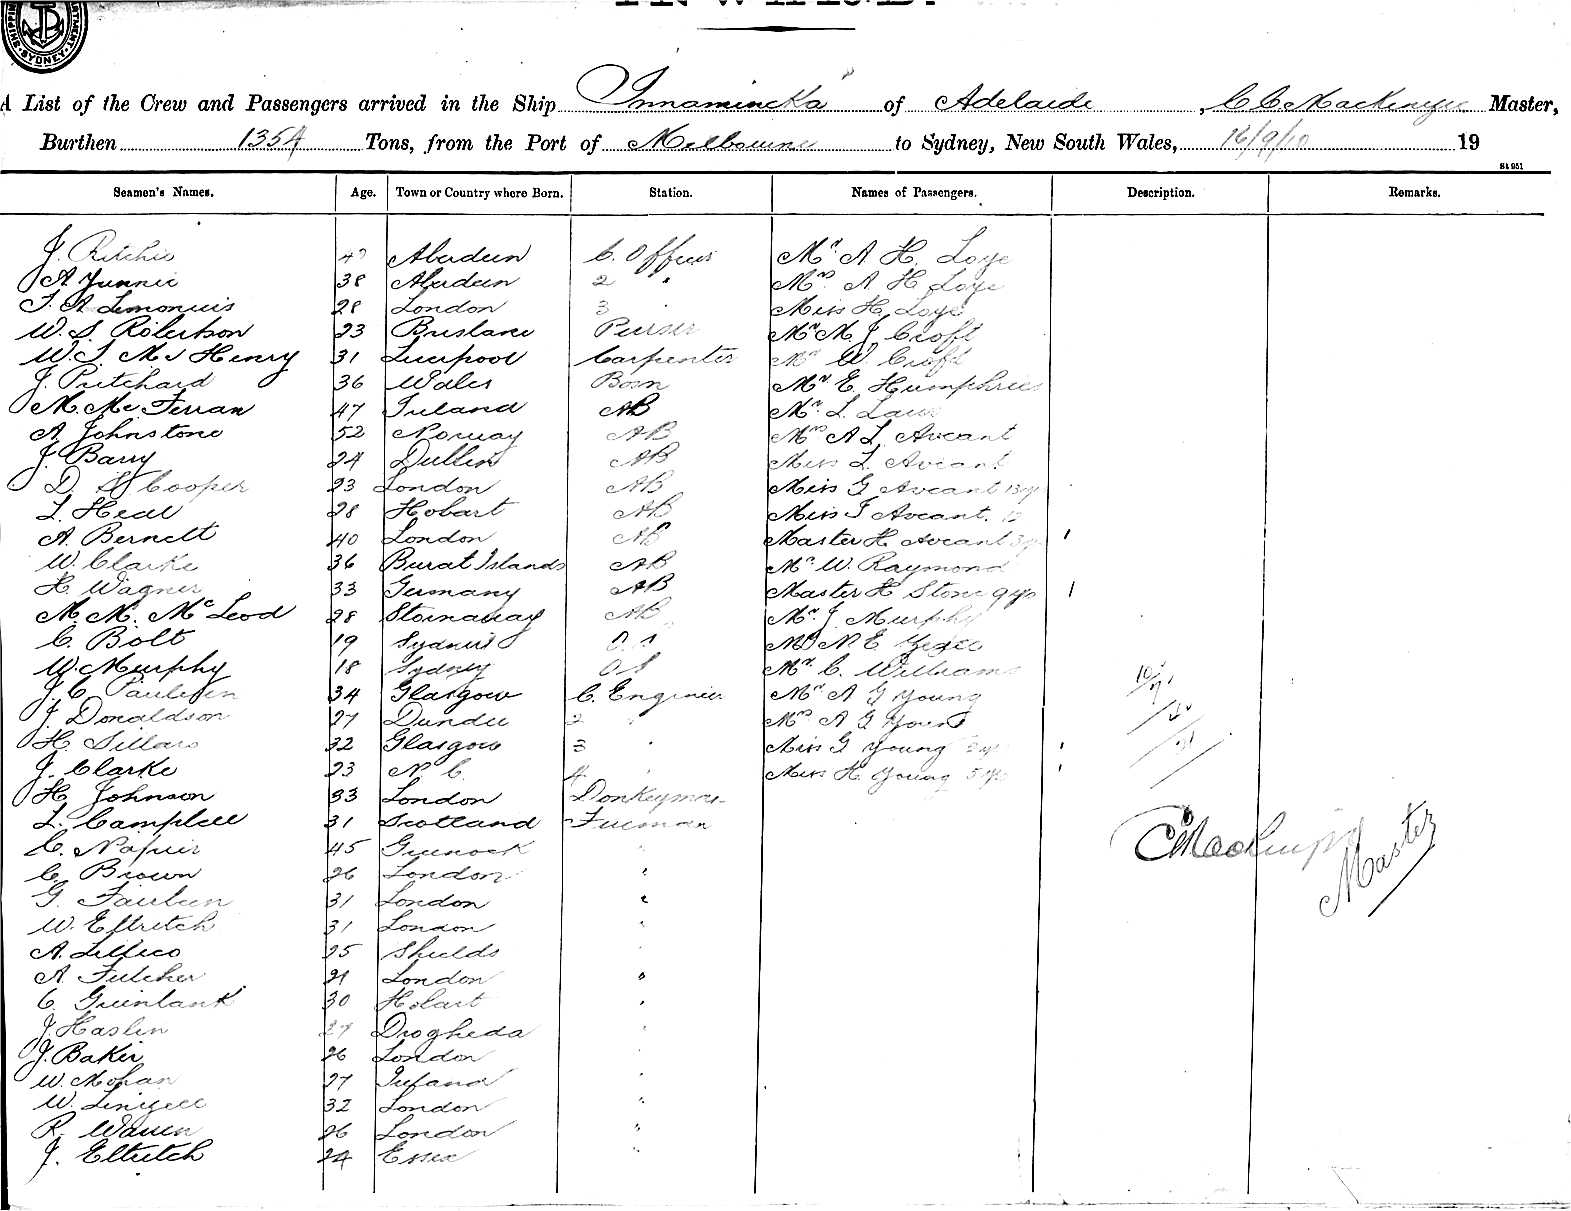 INWARD.
SHIPPING DEPARTMENT. SYDNEY
A List of the Crew and Passengers arrived in the Ship Innamincka of Adelaide, C C Mackenzie Master,
Burthen 1354 Tons, from the Port of Melbourne to Sydney, New South Wales, 16/9/10 19
St 951
Seamen's Names. Age. Town or Country where Born. Station. Names of Passengers. Description. Remarks.
J. Ritchie Aberdeen C. Officer Mr A H. Loye
A 38 Aberdeen 2 " Mrs A H Loye
28 London 3 " Miss H Loye
W. S. Robertson 23 Brisbane Purser Mr M J Croft
W. S. Mc Henry 31 Liverpool Carpenter Mr W Croft
J. Pritchard 36 Wales Bosn Mr E Humphries
M. Mc Ferran 47 Ireland AB Mr L
A Johnstone 52 Norway AB Mrs A L Aveant
J. Barry 24 Dublin AB Miss L Aveant
D Cooper 23 London AB Miss G Aveant 13 yrs
L. Heal 28 Hobart AB Miss F Aveant. 12
A. Bernett 40 London AB Master H Aveant 3 yrs
W. Clarke 36 Burat Islands AB Mr W. Raymond
H. Wagner 33 Germany AB Master H Stone 9 yrs
M. M. McLeod 28 Stornaway AB Mr J Murphy
C. Bolt 19 Sydney O.S Mr N E
W. Murphy 18 Sydney OS Mr C. Williams
J. C Paulsen 34 Glasgow C. Engineer Mr A G Young
J. Donaldson 27 Dundee 2 " Mrs A G Young
H. Sillars 32 Glasgow 3 " Miss G Young
J. Clarke 23 N. C. 4 " Miss H Young 5 yrs
H. Johnson 33 London Donkeyman
L. Campbell 31 Scotland Fireman
C. Napier 45 Greenock "
C Brown 26 London "
G. 31 London "
W. Eltritch 31 London "
A. Lillico 25 Shields "
A Fulcher 21 London "
C Greenbank 30 Hobart "
J. Haslin Drogheda "
J. Baker 26 London "
W. Mohan 27 Ireland "
W. 32 London "
R. Warren 26 London "
J. Eltritch 24 Essex "
CC Mackenzie
Master